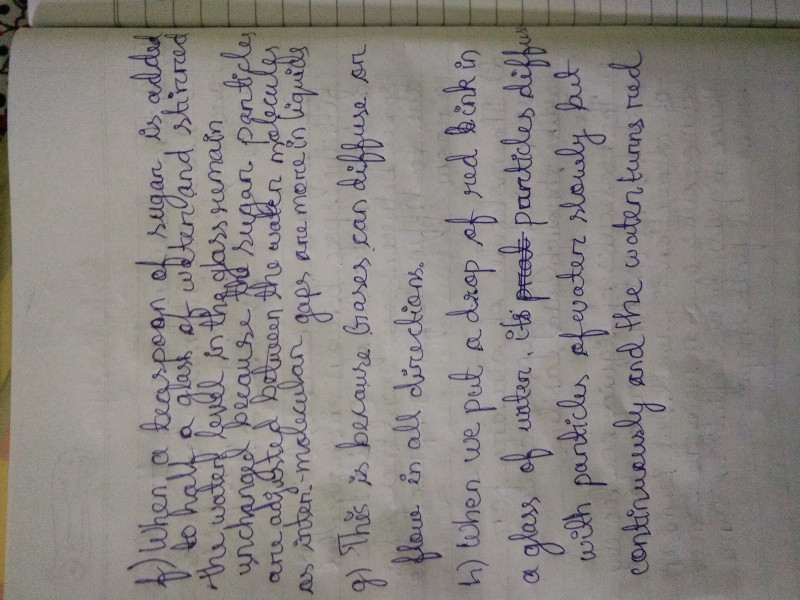 f) When a teaspoon of sugar is added
to half a glass of water and stirred
the water level in the glass remain
unchanged because the sugar particles
are adjusted between the water molecules
as inter-molecular gaps are more in liquids
g) This is because Gases can diffuse or
flow in all directions.
h) When we put a drop of red ink in
a glass of water, its particles diffuse
with particles of water slowly but
continuously and the water turns red